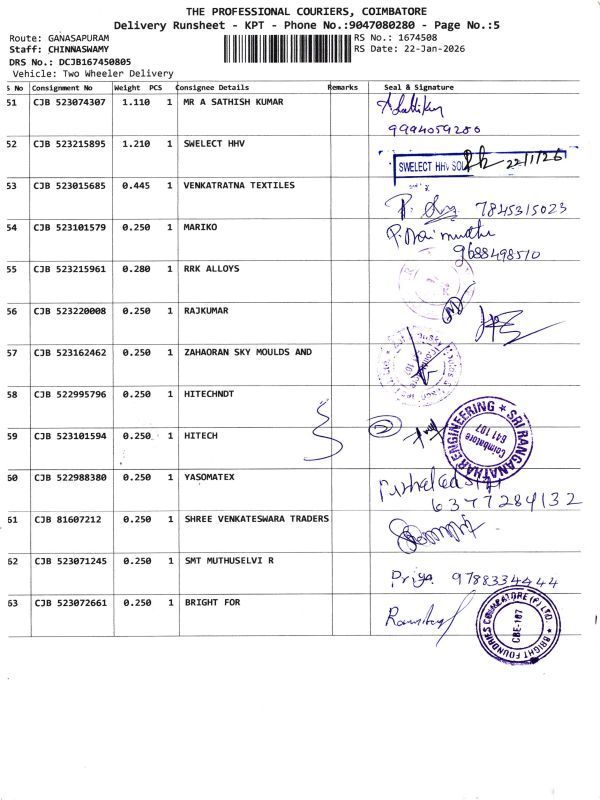 THE PROFESSIONAL COURIERS, COIMBATORE
Delivery Runsheet - KPT - Phone No.:9047080280 - Page No.:5
Route: GANASAPURAM RS No.: 1674508
Staff: CHINNASWAMY RS Date: 22-Jan-2026
DRS No.: DCJB167450805
Vehicle: Two Wheeler Delivery
S No Consignment No Weight PCS Consignee Details Remarks Seal & Signature
51 CJB 523074307 1.110 1 MR A SATHISH KUMAR
9994059280
52 CJB 523215895 1.210 1 SWELECT HHV
SWELECT HHV SOL 22/1/26
53 CJB 523015685 0.445 1 VENKATRATNA TEXTILES
7845315023
54 CJB 523101579 0.250 1 MARIKO
9688498510
55 CJB 523215961 0.280 1 RRK ALLOYS
56 CJB 523220008 0.250 1 RAJKUMAR
57 CJB 523162462 0.250 1 ZAHAORAN SKY MOULDS AND
58 CJB 522995796 0.250 1 HITECHNDT
59 CJB 523101594 0.250 1 HITECH
SRI RANGANATHAR ENGINEERING
Coimbatore
641 107
60 CJB 522988380 0.250 1 YASOMATEX
6377284132
61 CJB 81607212 0.250 1 SHREE VENKATESWARA TRADERS
62 CJB 523071245 0.250 1 SMT MUTHUSELVI R
Priya 9788334444
63 CJB 523072661 0.250 1 BRIGHT FOR
BRIGHT FOUNDRIES COIMBATORE (P) LTD.
CBE-107